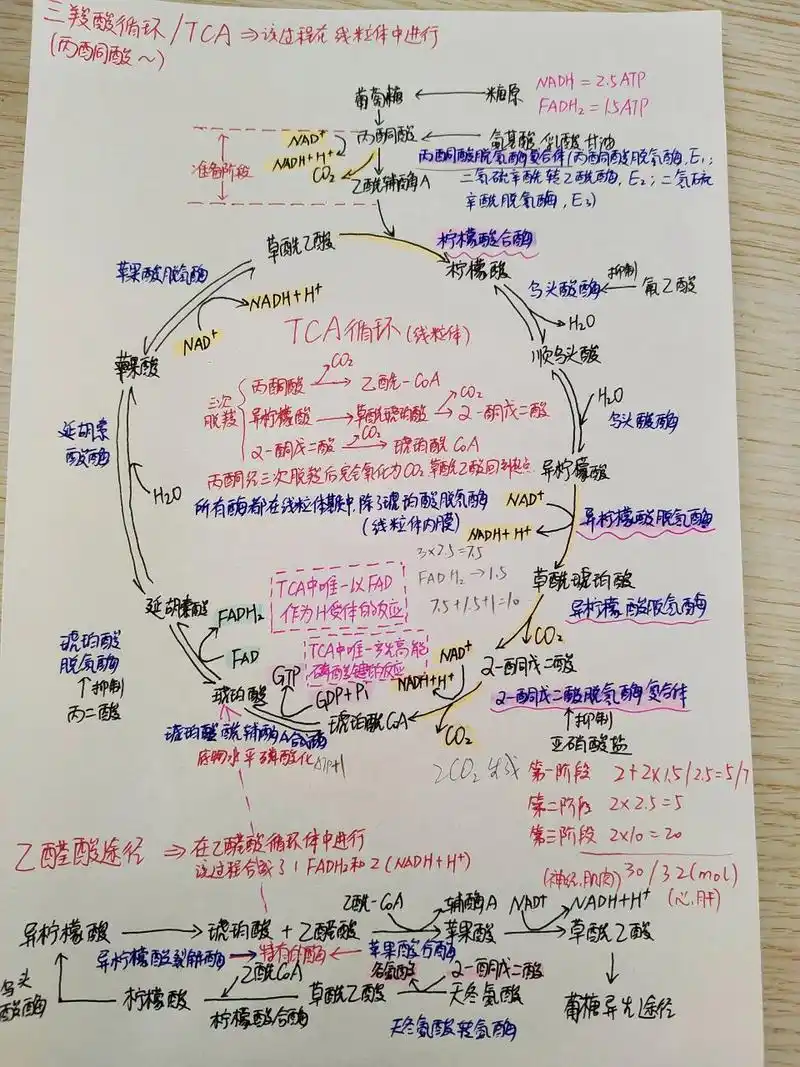 三羧酸循环/TCA ⇒ 该过程在线粒体中进行
(丙酮酸~)
葡萄糖 ← 糖原
NADH = 2.5ATP
FADH₂ = 1.5ATP
准备阶段
NAD⁺
NADH+H⁺
CO₂
丙酮酸 ← 氨基酸、乳酸、甘油
丙酮酸脱氢酶复合体(丙酮酸脱氢酶,E₁;
二氢硫辛酰转乙酰酶,E₂;二氢硫
辛酰脱氢酶,E₃)
乙酰辅酶A
草酰乙酸
柠檬酸合酶
柠檬酸
苹果酸脱氢酶
NADH+H⁺
NAD⁺
乌头酸酶 ← 抑制 氟乙酸
H₂O
顺乌头酸
苹果酸
TCA循环(线粒体)
三次
脱羧
丙酮酸 → 乙酰-CoA
CO₂
异柠檬酸 → 草酰琥珀酸 → α-酮戊二酸
CO₂
α-酮戊二酸 → 琥珀酰CoA
CO₂
H₂O
乌头酸酶
异柠檬酸
延胡索
酸酶
H₂O
所有酶都在线粒体基质中,除了琥珀酸脱氢酶
(线粒体内膜)
NAD⁺
NADH+H⁺
异柠檬酸脱氢酶
3×2.5=7.5
FADH₂→1.5
7.5+1.5+1=10
草酰琥珀酸
异柠檬酸脱氢酶
CO₂
TCA中唯一以FAD
作为H受体的反应
延胡索酸
FADH₂
FAD
琥珀酸
脱氢酶
↑抑制
丙二酸
GTP
GDP+Pi
NAD⁺
NADH+H⁺
α-酮戊二酸
α-酮戊二酸脱氢酶复合体
↑抑制
亚砷酸盐
琥珀酸
琥珀酰CoA
CO₂
琥珀酰辅酶A合酶
底物水平磷酸化
ATP+1
2CO₂生成
第一阶段 2+2×1.5/2.5=5/7
第二阶段 2×2.5=5
第三阶段 2×10=20
(神经、肌肉) 30/32(mol)
(心、肝)
乙醛酸途径 ⇒ 在乙醛酸循环体中进行
该过程合成了1FADH₂和2(NADH+H⁺)
乙酰-CoA
辅酶A
NAD⁺
NADH+H⁺
异柠檬酸 → 琥珀酸 + 乙醛酸 → 苹果酸 → 草酰乙酸
异柠檬酸裂解酶 → 特有的酶 ← 苹果酸合酶
乌头
酸酶
乙酰CoA
谷氨酸
α-酮戊二酸
柠檬酸 ← 草酰乙酸 ← 天冬氨酸
柠檬酸合酶
天冬氨酸转氨酶
葡糖异生途径